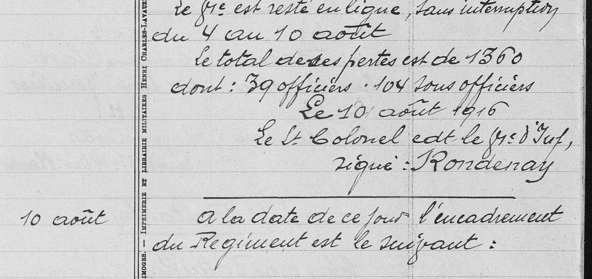 le Rgt est resté en ligne, sans interruption
du 4 au 10 août
le total de ses pertes est de 1360
dont : 39 officiers · 104 sous officiers
Le 10 août 1916
Le Lt Colonel cdt le Rgt d'Inf,
signé : Rondenay
10 août
A la date de ce jour l'encadrement
du Régiment est le suivant :
IMOGES. — IMPRIMERIE ET LIBRAIRIE MILITAIRES HENRI CHARLES-LAVAUZ